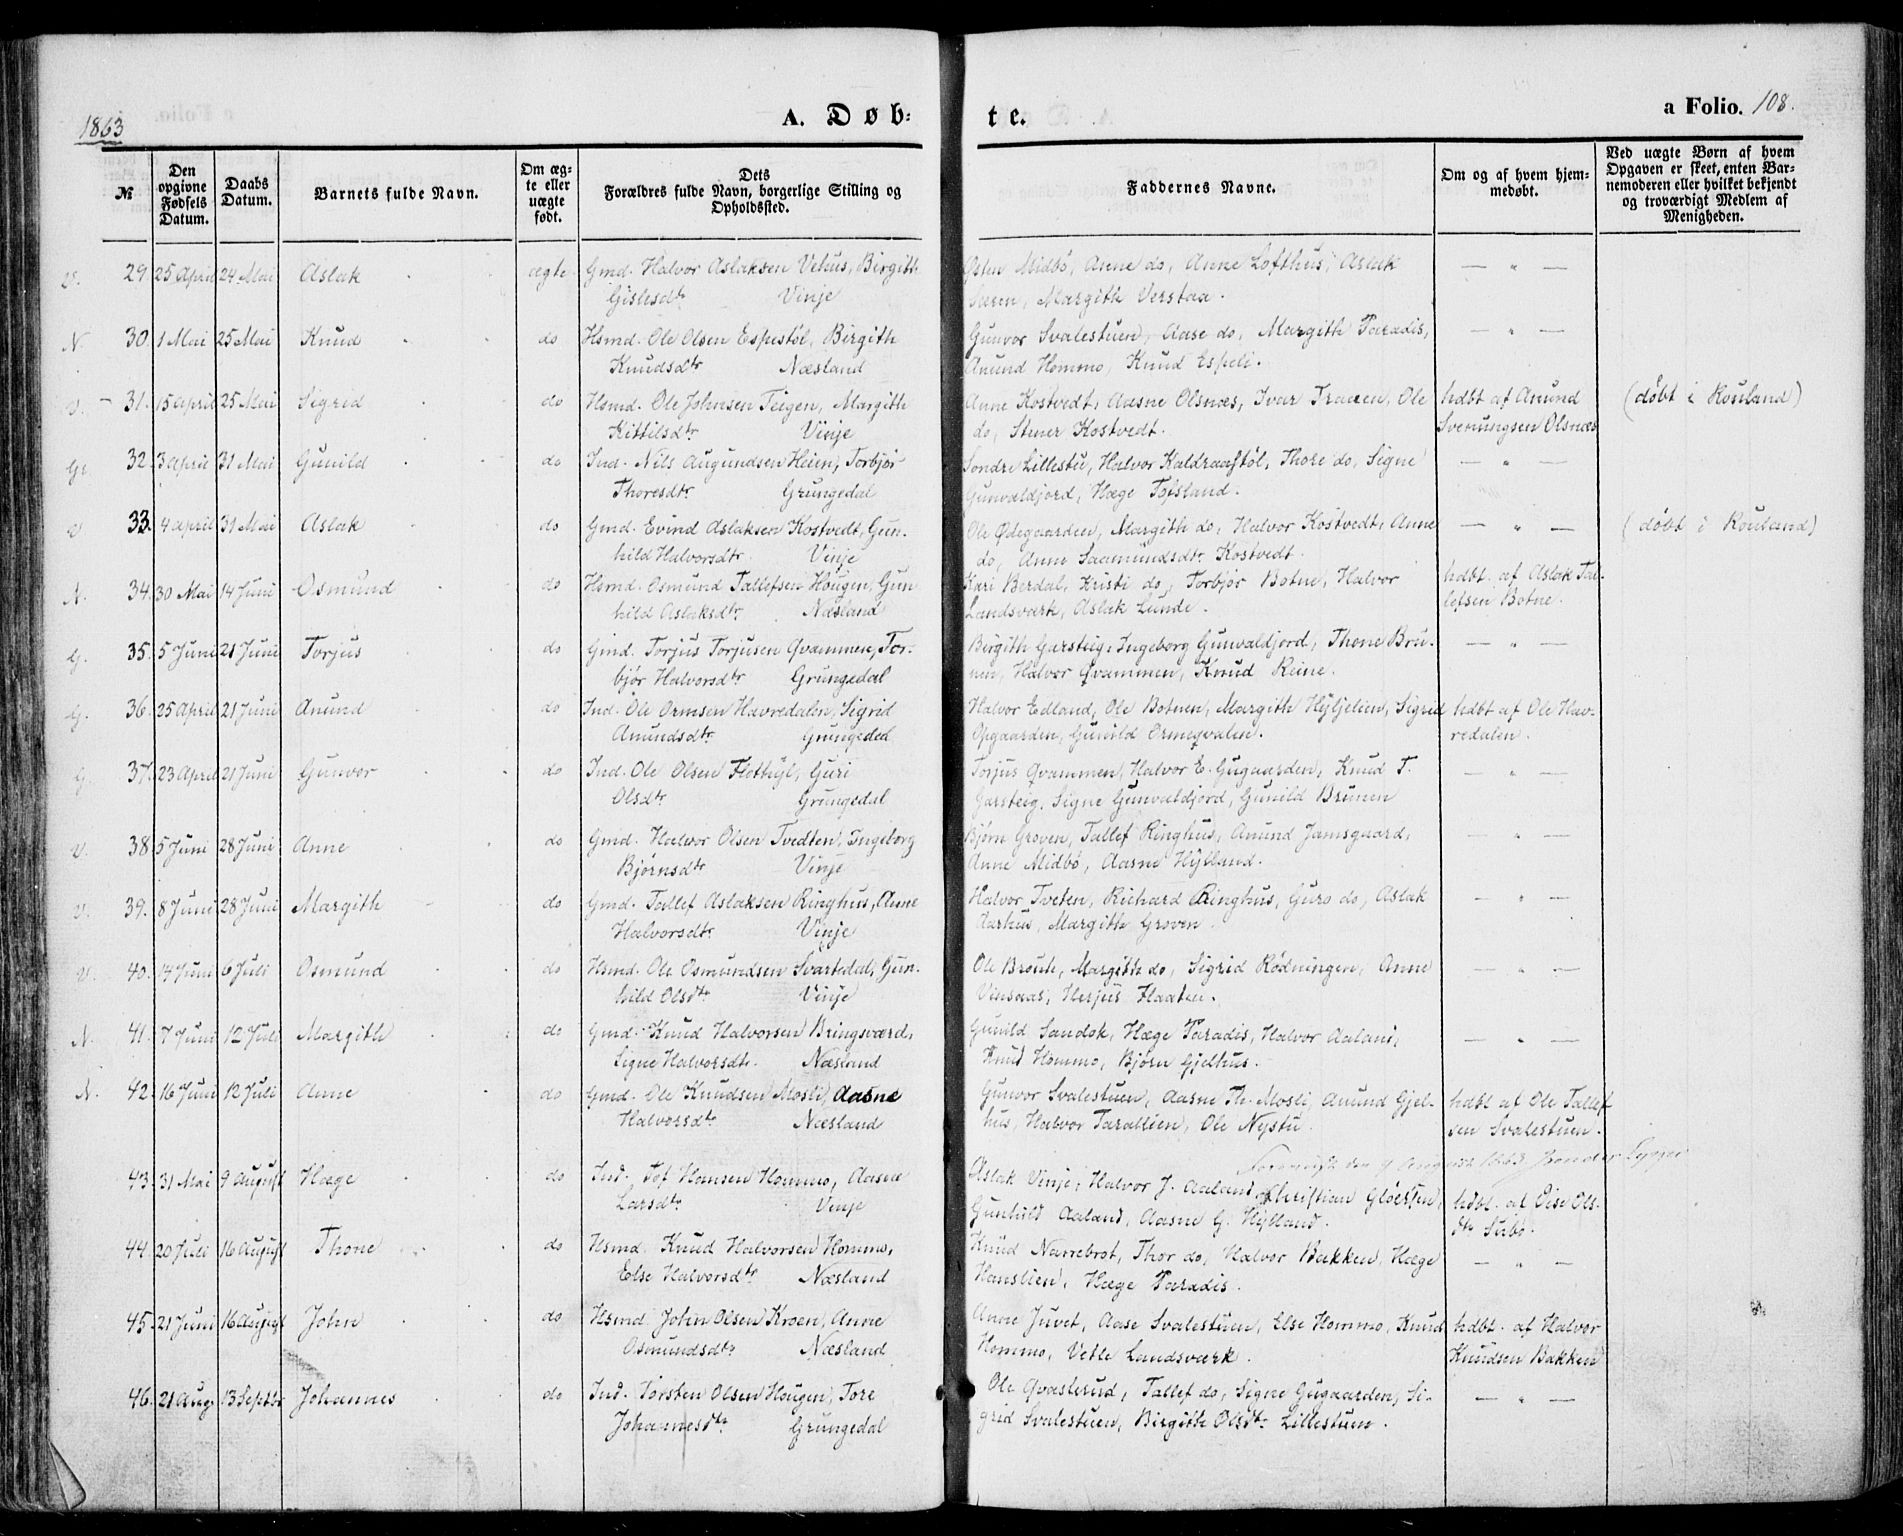 1863
A. Døb-
te.
a Folio. 108.
№
Den opgivne Fødsels Datum.
Daabs Datum.
Barnets fulde Navn.
Om ægte eller uægte født.
Dets Forældres fulde Navn, borgerlige Stilling og Opholdssted.
Faddernes Navne.
Om og af hvem hjemmedøbt.
Ved uægte Børn af hvem Opgaven er skeet, enten Barnemoderen eller hvilket bekjendt og troværdigt Medlem af Menigheden.
V. 29 25 April 24 Mai Aslak ægte Gmd. Halvor Aslaksen Vehus, Birgith Østen Midbø, Anne do, Anne Lofthus, Aslak — " —
Gislesdtr Vinje Margith Verstaa.
N. 30 1 Mai 25 Mai Knud do Hsmd. Ole Olsen Espestøl, Birgith Gunvor Svalestuen, Aase do, Margith Paradis, — " —
Knudsdtr Næsland Anund Hommo, Knud Espeli.
V. - 31. 15 April 25 Mai Sigrid do Hsmd. Ole Johnsen Teigen, Margith Anne Kostvedt, Aasne Olsnæs, Ivar Traaen, Ole hdbt af Anund (døbt i Rouland)
Kittilsdtr Vinje do, Stener Kostvedt. Svenungsen Olsnæs
Gr. 32. 3 April 31 Mai Gunild do Ind. Nils Augundsen Heien, Torbjør Sondre Lillestu, Halvor Kaldraastøl, Thore do, Signe — " —
Thoresdtr Grungedal Gunvaldjord, Hæge Tøisland.
V 33. 4 April 31 Mai Aslak do Gmd. Evind Aslaksen Kostvedt, Gun- Ole Ødegaarden, Margith do, Halvor Kostvedt, Anne — " — (døbt i Rouland)
hild Halvorsdtr. Vinje do, Anne Saamundsdtr Kostvedt.
N. 34. 30 Mai 14 Juni Osmund do Hsmd. Osmund Tallefsen Hougen, Gun- Kari Berdal, Kristi do, Torbjør Botne, Halvor hdbt. af Aslak Tal-
hild Aslaksdtr. Næsland Landsværk, Aslak Lunde. lefsen Botne.
G. 35. 5 Juni 21 Juni Torjus do Gmd. Torjus Torjusen Qvammen, Tor- Birgith Garsteig, Ingeborg Gunvaldjord, Thone Bru- — " —
bjør Halvorsdtr Grungedal nen, Halvor Qvammen, Knud Reine.
G. 36. 25 April 21 Juni Anund do Ind. Ole Ormsen Havredalen, Sigrid Halvor Edland, Ole Botnen, Margith Hyljelien, Sigrid hdbt af Ole Hav-
Anundsdtr. Grungedal Opgaarden, Gunild Ormeqvalen. redalen.
G. 37. 23 April 21 Juni Gunvor do Ind. Ole Olsen Flothyl, Guri Torjus Qvammen, Halvor E. Gugaarden, Knud T. — " —
Olsdtr. Grungedal Garsteig, Signe Gunvaldjord, Gunild Brunen
V. 38 5 Juni 28 Juni Anne do Gmd. Halvor Olsen Tvedten, Ingeborg Bjørn Groven, Tallef Ringhus, Anund Jamsgaard, — " —
Bjørnsdtr Vinje Anne Midbø, Aasne Hylland.
V. 39. 8 Juni 28 Juni Margith do Gmd. Tallef Aslaksen Ringhus, Anne Halvor Tveten, Richard Ringhus, Guro do, Aslak — " —
Halvorsdtr. Vinje Aarhus, Margith Groven.
V. 40. 14 Juni 6 Juli Osmund do Hsmd. Ole Osmundsen Svartedal, Gun- Ole Broute, Margith do, Sigrid Rødningen, Anne — " —
hild Olsdtr Vinje Vinsnaas, Herjus Flaaten.
N. 41. 7 Juni 12 Juli Margith do Gmd. Knud Halvorsen Bringsværd, Gunild Sandok, Hæge Paradis, Halvor Aaland, — " —
Signe Halvorsdtr. Næsland Knud Hommo, Bjørn Gjelhus.
N. 42. 16 Juni 12 Juli Anne do Gmd. Ole Knudsen Mosli, Aasne Gunvor Svalestuen, Aasne Th. Mosli, Anund Gjel- hdbt af Ole Tallef
Halvorsdtr. Næsland hus, Halvor Taraldlien, Ole Nystu. sen Svalestuen.
den 9 August 1863
43. 31 Mai 9 August Hæge do Ind. Tof Hansen Hommo, Aasne Aslak Vinje, Halvor J. Aaland, Christian Gloersen, hdbt. af Else Ols-
Larsdtr. Vinje Gunhild Aaland, Aasne G. Hylland. dtr Subø.
44. 20 Juli 16 August Thone do Hsmd. Knud Halvorsen Hommo, Knud Narrebrot, Thor do, Halvor Bakken, Hæge — " —
Else Halvorsdtr Næsland Hanslien, Hæge Paradis.
45. 21 Juni 16 August John do Hsmd. John Olsen Kroen, Anne Anne Juvet, Aase Svalestuen, Else Hommo, Knud hdbt. af Halvor
Osmundsdtr. Næsland Hommo, Vetle Landsværk. Knudsen Bakken
46. 21 Aug 13 Septbr Johannes do Ind. Torsten Olsen Hougen, Tore Ole Qvasterud, Tallef do, Signe Gugaarden, Si- — " —
Johannesdtr. Grungedal grid Svalestuen, Birgith Olsdtr. Lillestuen.